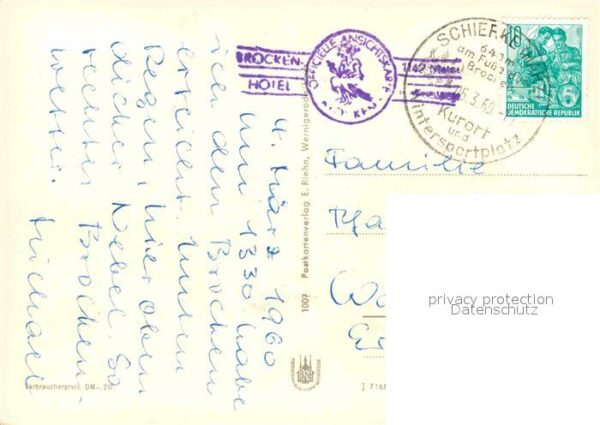 4. März 1960
um 1330 habe
ich den Brocken
erreicht. Unten
Regen, hier oben
dicker Nebel. So
rechtes Brocken-
wetter.
Michael
Verbraucherpreis DM -.20
1007 Postkartenverlag E. Riehn, Wernigerode
J 716
BROCKEN-
HOTEL
OFFICIELLE ANSICHTSKARTE
1142 Meter
SCHIERKE HARZ
640 m
am Fuße des
Brockens
5.3.60
Kurort
und
Wintersportplatz
DEUTSCHE
DEMOKRATISCHE REPUBLIK
5
Familie
privacy protection
Datenschutz